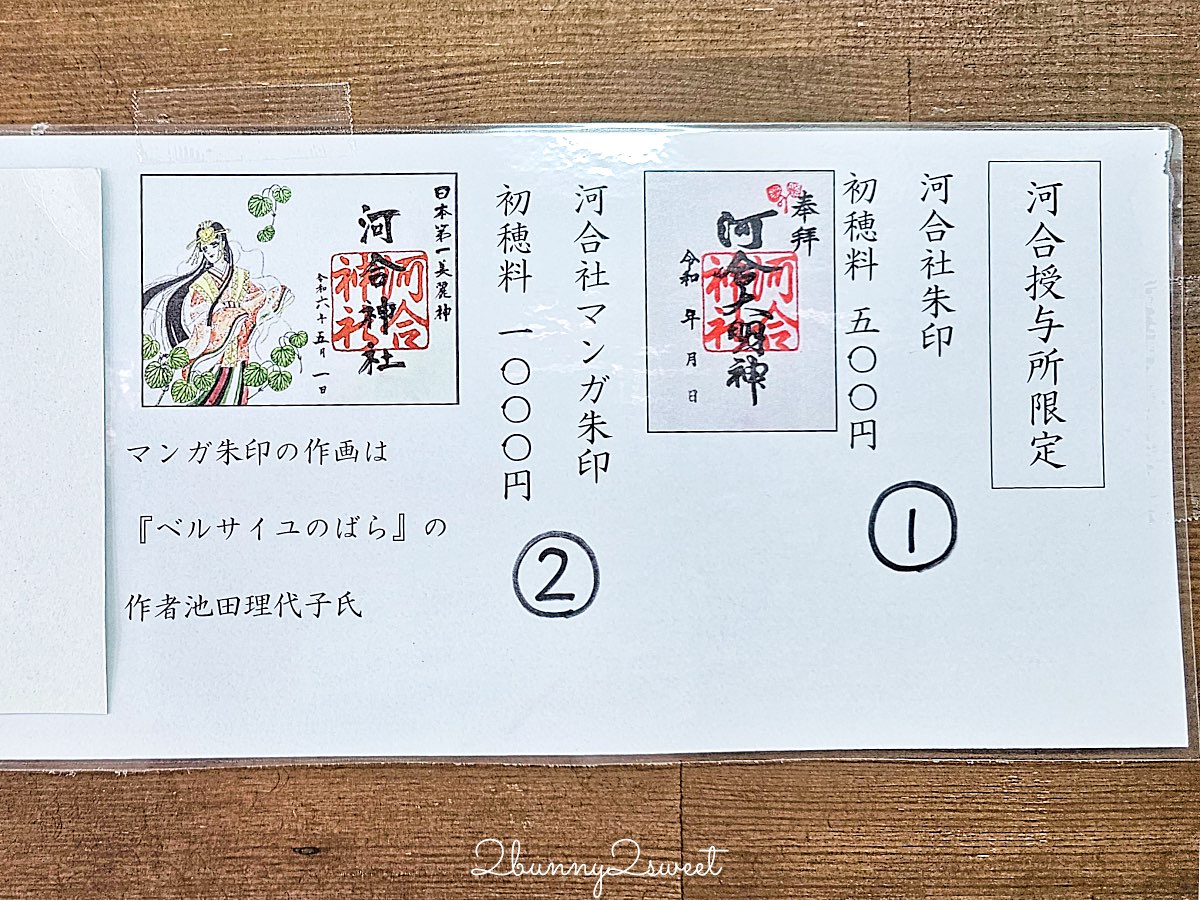 河合授与所限定
河合社朱印
初穂料 五〇〇円
①
奉拝
河合大明神
河合神社
令和 年 月 日
河合社マンガ朱印
初穂料 一〇〇〇円
②
日本第一美麗神
河合神社
河合神社
令和六年五月一日
マンガ朱印の作画は
『ベルサイユのばら』の
作者池田理代子氏
2bunny2sweet